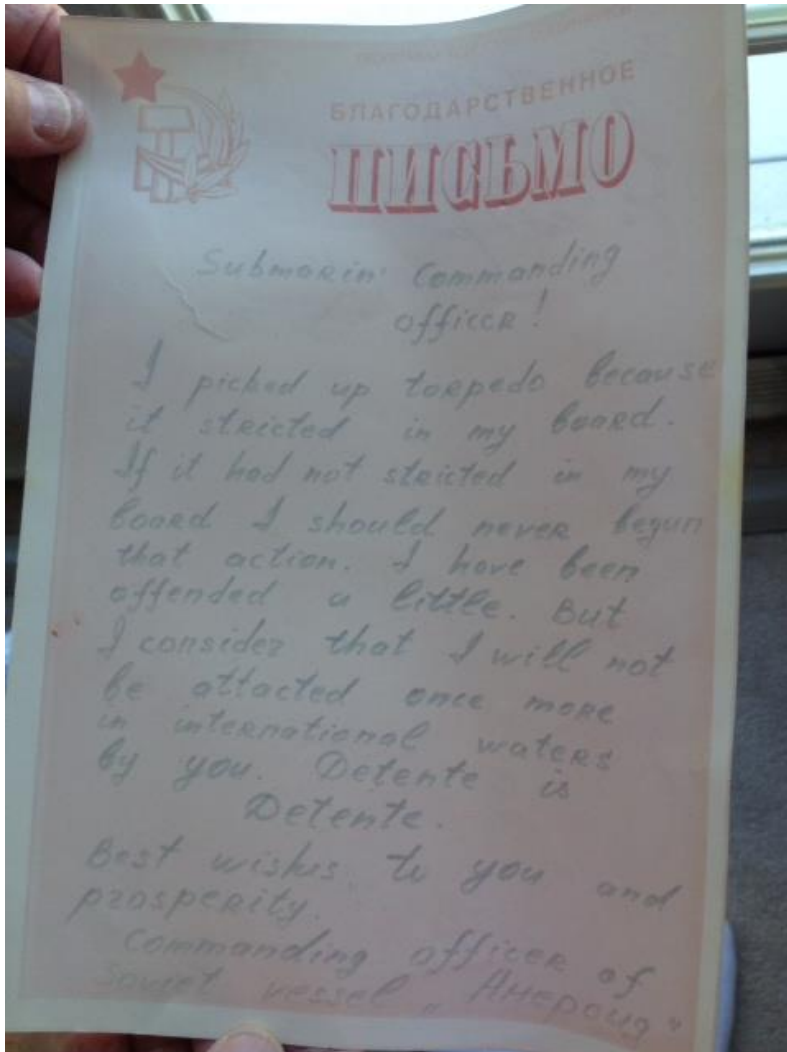 БЛАГОДАРСТВЕННОЕ
ПИСЬМО
Submarin' Commanding
officer!
I picked up torpedo because
it stricted in my board.
If it had not stricted in my
board I should never begun
that action. I have been
offended a little. But
I consider that I will not
be attacted once more
in international waters
by you. Detente is
Detente.
Best wishes to you and
prosperity.
Commanding officer of
soviet vessel „Анероид"